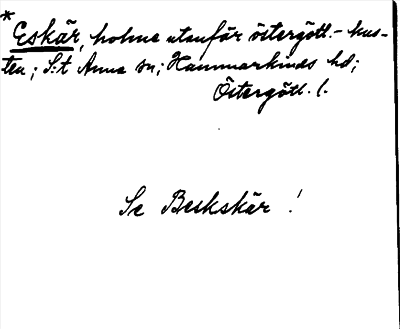 * Eskär, holme utanför östergött.-kus-
ten; S:t Anna sn; Hammarkinds hd;
Östergötl. l.
Se Beskskär!